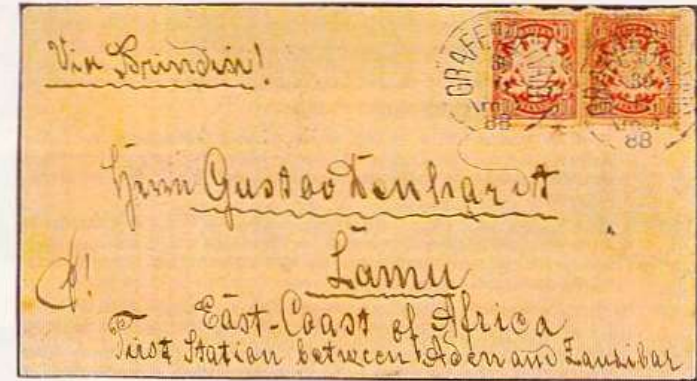 Via Brindisi!
GRAFE
88
88
Herrn Gustav Denhardt
Lamu
East-Coast of Africa
First Station between Aden and Zanzibar